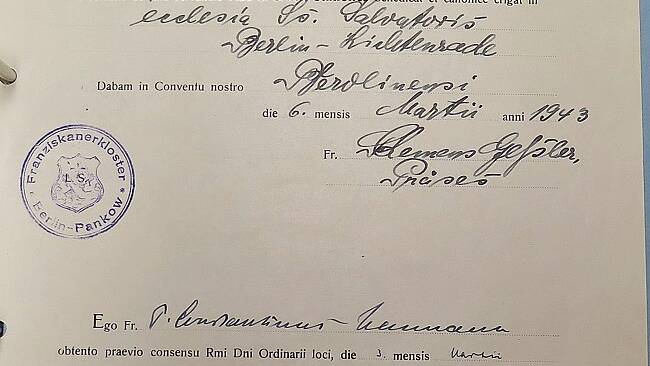 benedicat et canonice erigat in
ecclesia Ss. Salvatoris
Berlin-Lichtenrade
Dabam in Conventu nostro Berolinensi
die 6. mensis Martii anni 1943
Fr. Clemens Geßler,
Präses
Franziskanerkloster
L. S.
Berlin-Pankow
Ego Fr. P. Constantinus Neumann
obtento praevio consensu Rmi Dni Ordinarii loci, die 3. mensis Martii